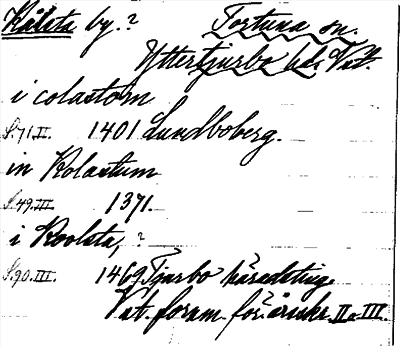 Kålsta by.? Tortuna sn.
Yttertjurbo hd. Vstm.
i colastom
S. 71. II. 1401 Lundboberg.
in Kolastum
S. 49. III. 1371.
i Koolsta, ?
S. 90. III. 1469 Tjurbo häradsting.
Vst. foram. för